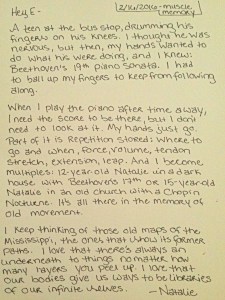 Hey, E-
2/16/2016 - muscle memory
A teen at the bus stop, drumming his
fingers on his knees. I thought he was
nervous, but then, my hands wanted to
do what his were doing, and I knew:
Beethoven's 19th piano sonata. I had
to ball up my fingers to keep from following
along.
When I play the piano after time away,
I need the score to be there, but I don't
need to look at it. My hands just go.
Part of it is Repetition stored: where to
go and when, force, volume, tendon
stretch, extension, leap. And I become
multiples: 12-year-old Natalie in a dark
house with Beethoven's 17th or 15-year-old
Natalie in an old church with a Chopin
Nocturne. It's all there in the memory
of old movement.
I keep thinking of those old maps of the
Mississippi, the ones that show its former
paths. I love that there's always an
underneath to things no matter how
many layers you peel up. I love that
our bodies give us ways to be libraries
of our infinite selves.
—Natalie